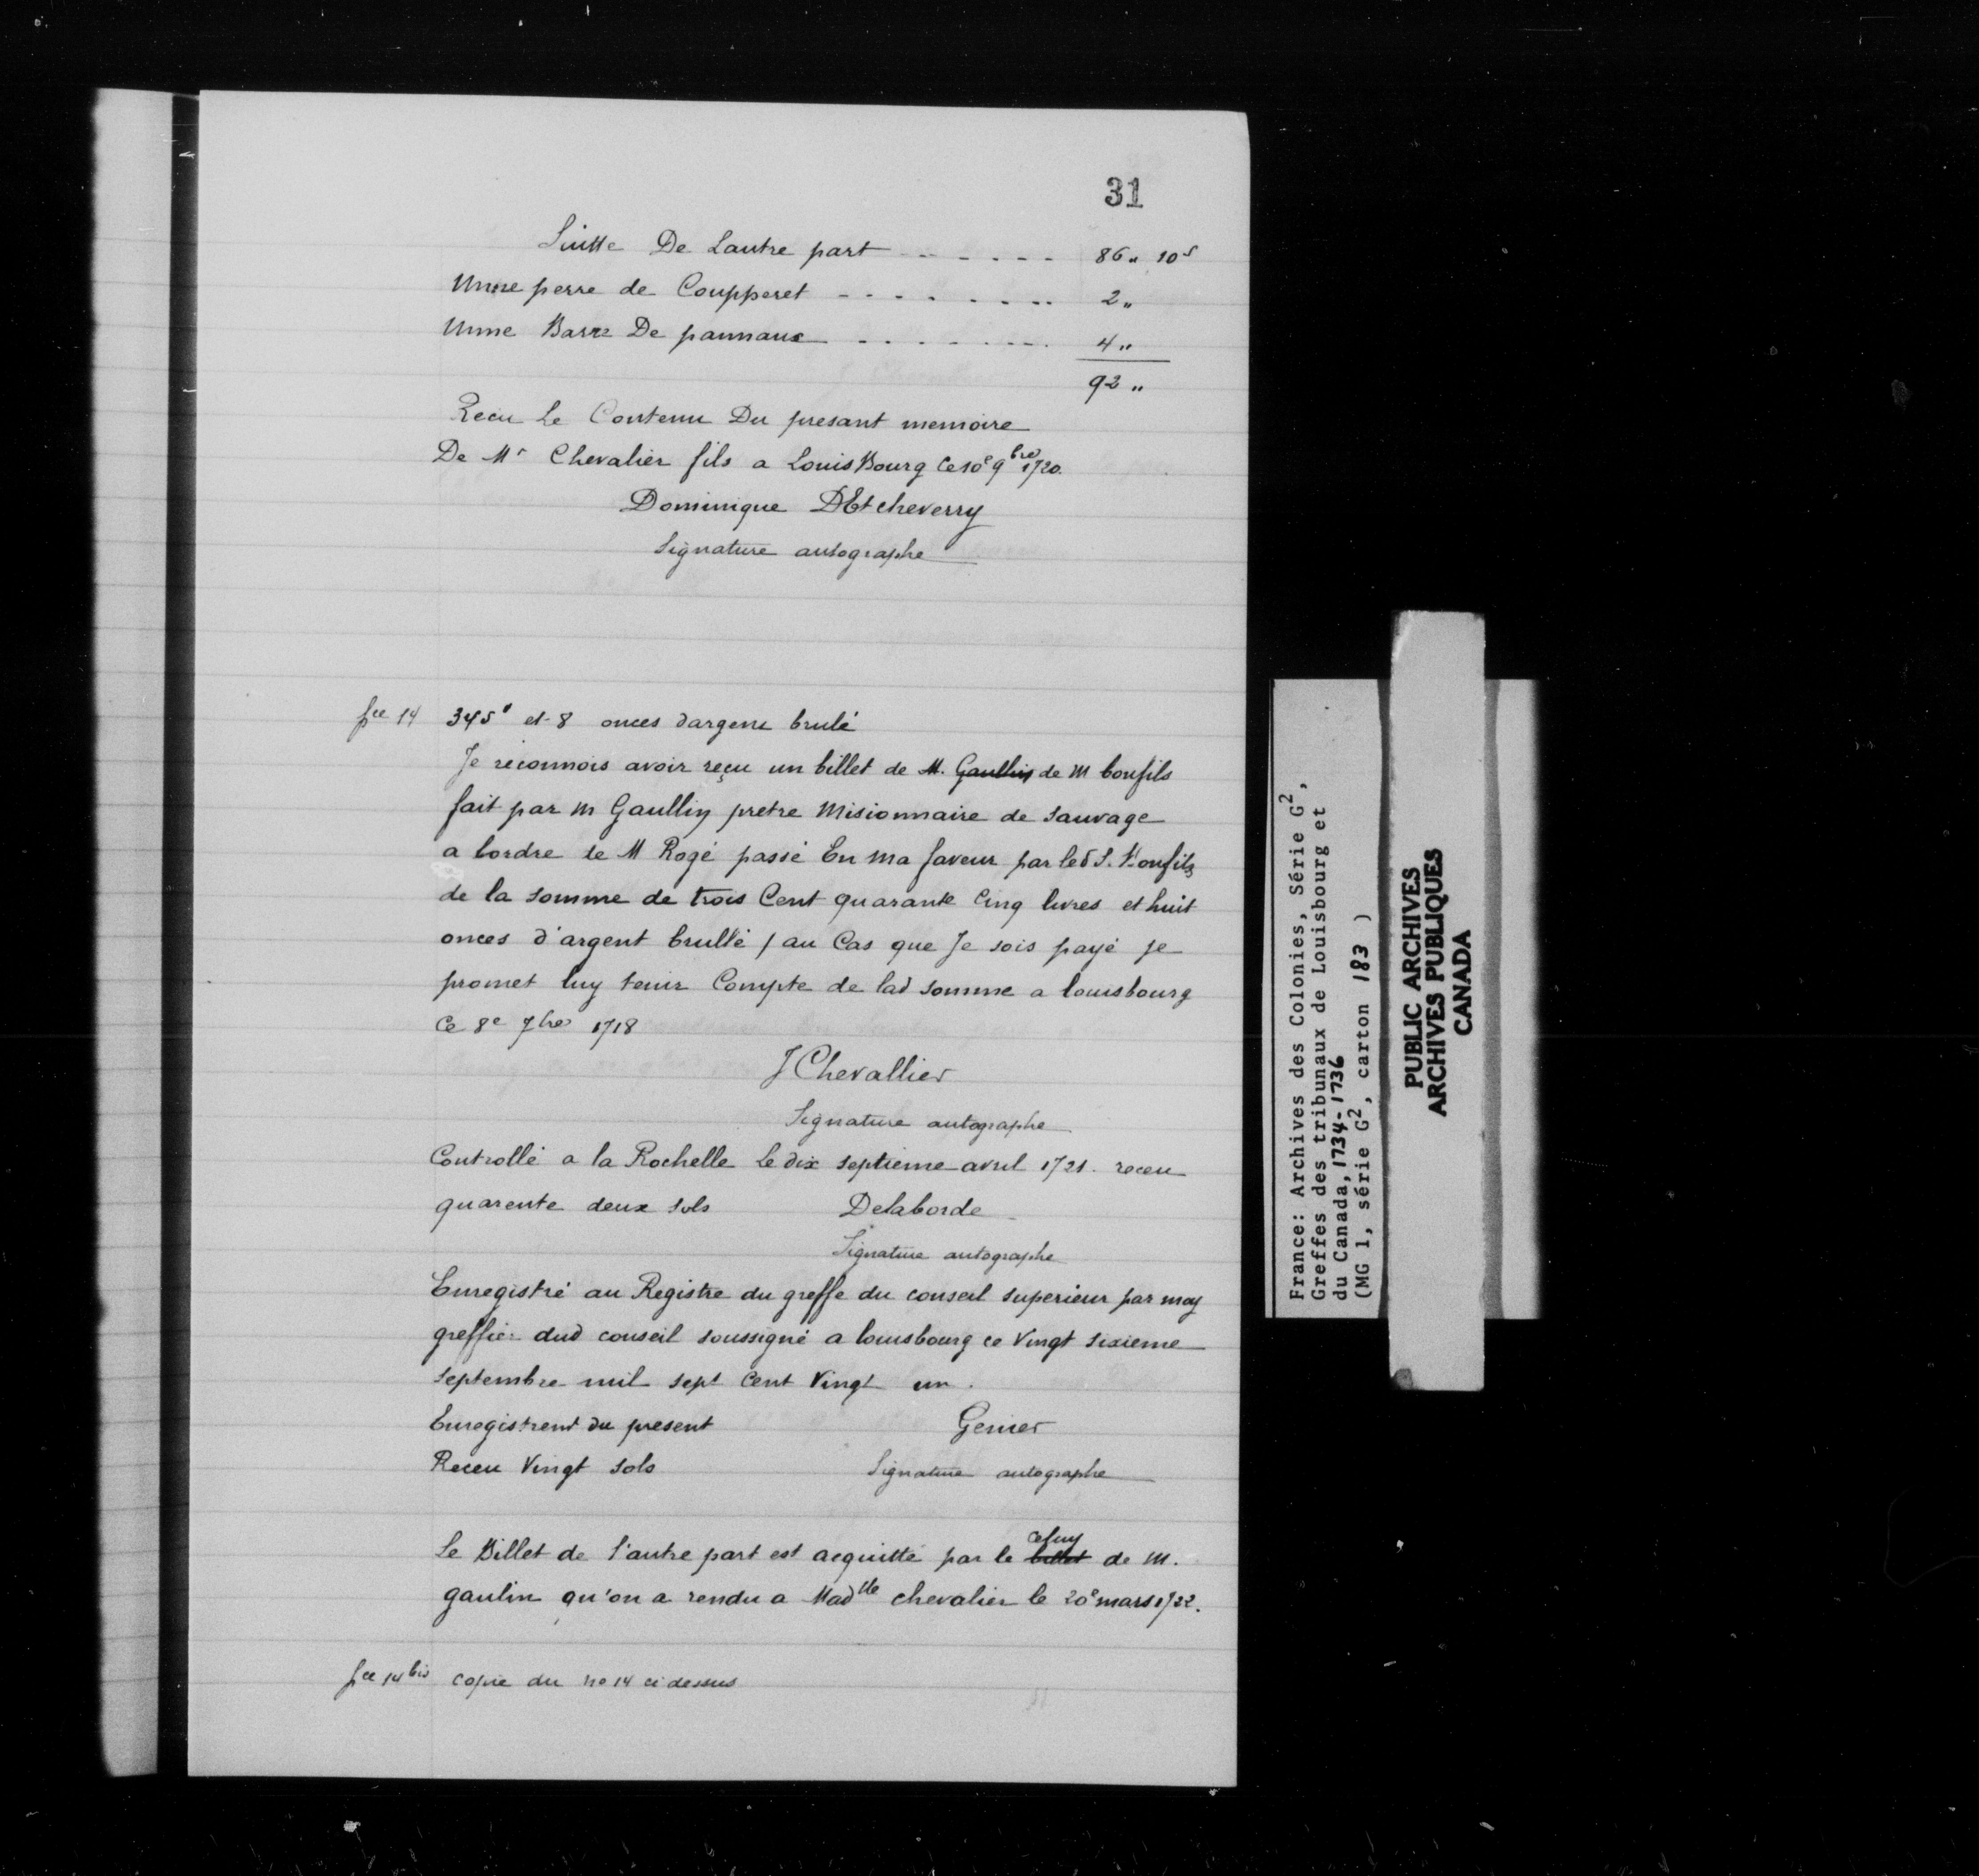 31
Suitte De Lautre part - - - - - - 86 " 10 s
Unne perre de Coupperet - - - - - - - - 2 "
Unne Barre De pannaux - - - - - - - 4 "
92 "
Recu Le Contenu Du presant memoire
De Mr Chevalier fils a Louis Bourg Ce 10e 9bre 1720.
Dominique DEtcheverry
Signature autographe
pce 14 345# et 8 onces dargent brulé
Je reconnois avoir reçu un billet de M. Gaullin de M bonfils
fait par M Gaullin pretre Misionnaire de Sauvage
a lordre de M Rogé passé En Ma faveur par led S. Bonfils
de la Somme de trois Cent quarante Cinq livres et huit
onces d'argent brullé / au Cas que Je sois payé je
promet luy tenir Compte de lad somme a louisbourg
Ce 8e 7bre 1718
J Chevallier
Signature autographe
Controllé a la Rochelle Le dix septieme avril 1721. receu
quarente deux sols Delaborde
Signature autographe
Enregistré au Registre du greffe du conseil superieur par moy
greffier dud conseil soussigné a louisbourg ce Vingt sixieme
septembre mil sept Cent Vingt un.
Enregistremt du present Gerier
Receu Vingt sols Signature autographe
Le Billet de l'autre part est acquitté par le billet celuy de M.
gaulin qu'on a rendu a Madlle chevalier le 20e mars 1722.
pce 14 bis copie du no 14 ci dessus
France: Archives des Colonies, Série G2,
Greffes des tribunaux de Louisbourg et
du Canada, 1734-1736
(MG 1, série G2, carton 183 )
PUBLIC ARCHIVES
ARCHIVES PUBLIQUES
CANADA